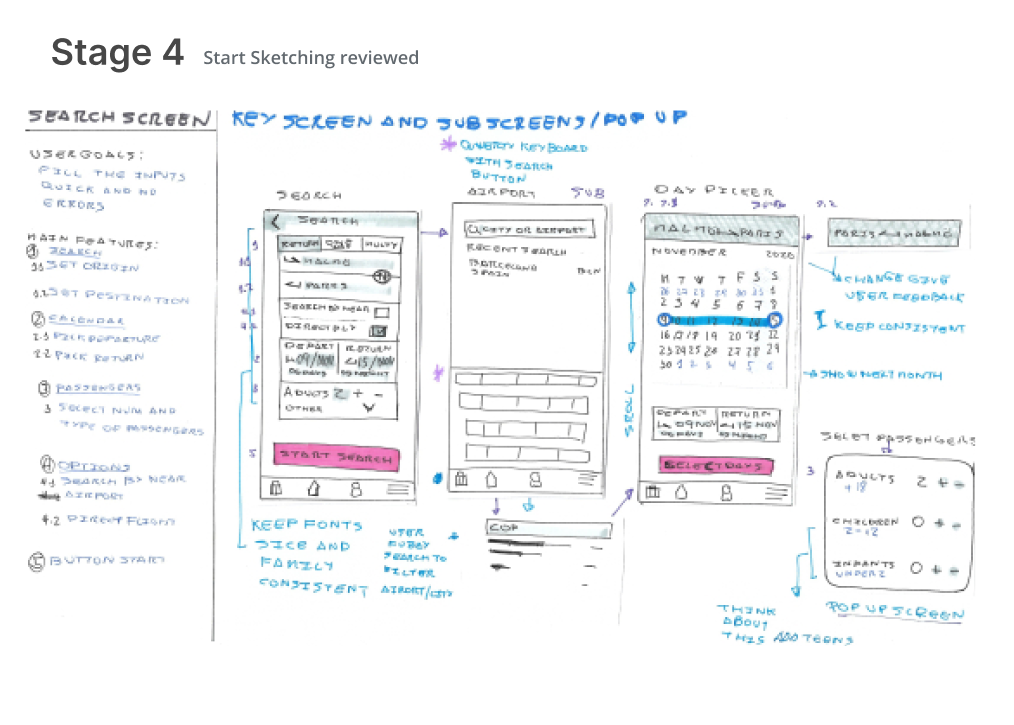 Stage 4 Start Sketching reviewed
SEARCH SCREEN
USER GOALS:
FILL THE INPUTS
QUICK AND NO
ERRORS
MAIN FEATURES:
1 SEARCH
1.1 SET ORIGIN
1.2 SET DESTINATION
2 CALENDAR
2.1 PICK DEPARTURE
2.2 PICK RETURN
3 PASSENGERS
3 SELECT NUM AND
TYPE OF PASSENGERS
4 OPTIONS
4.1 SEARCH BY NEAR
AIRPORT
4.2 DIRECT FLIGHT
5 BUTTON START
KEY SCREEN AND SUB SCREENS/POP UP
* QWERTY KEYBOARD
WITH SEARCH
BUTTON
SEARCH
SEARCH
RETURN MULTY
MALMO
PARIS
SEARCH BY NEAR
DIRECT FLY
DEPART RETURN
09/NOV 15/NOV
ADULTS 2 + -
OTHER
START SEARCH
KEEP FONTS
SICE AND
FAMILY
CONSISTENT
AIRPORT SUB
CITY OR AIRPORT
RECENT SEARCH
BARCELONA BCN
SPAIN
COP
USER
FUZZY
SEARCH TO
FILTER
AIRPORT/CITY
DAY PICKER
MALMO PARIS
NOVEMBER 2020
M T W T F S S
2 3 4 5 6 7 8
16 17 18 19 20 21 22
23 24 25 26 27 28 29
30 1 2 3 4 5 6
SCROLL
DEPART RETURN
09 NOV 15 NOV
SELECT DAYS
2.2
PARIS MALMO
CHANGE GIVE
USER FEEDBACK
KEEP CONSISTENT
SHOW NEXT MONTH
SELET PASSENGERS
3
ADULTS 2 + -
+18
CHILDREN 0 + -
2-12
INFANTS 0 + -
UNDER 2
POP UP SCREEN
THINK
ABOUT
THIS ADD TEENS